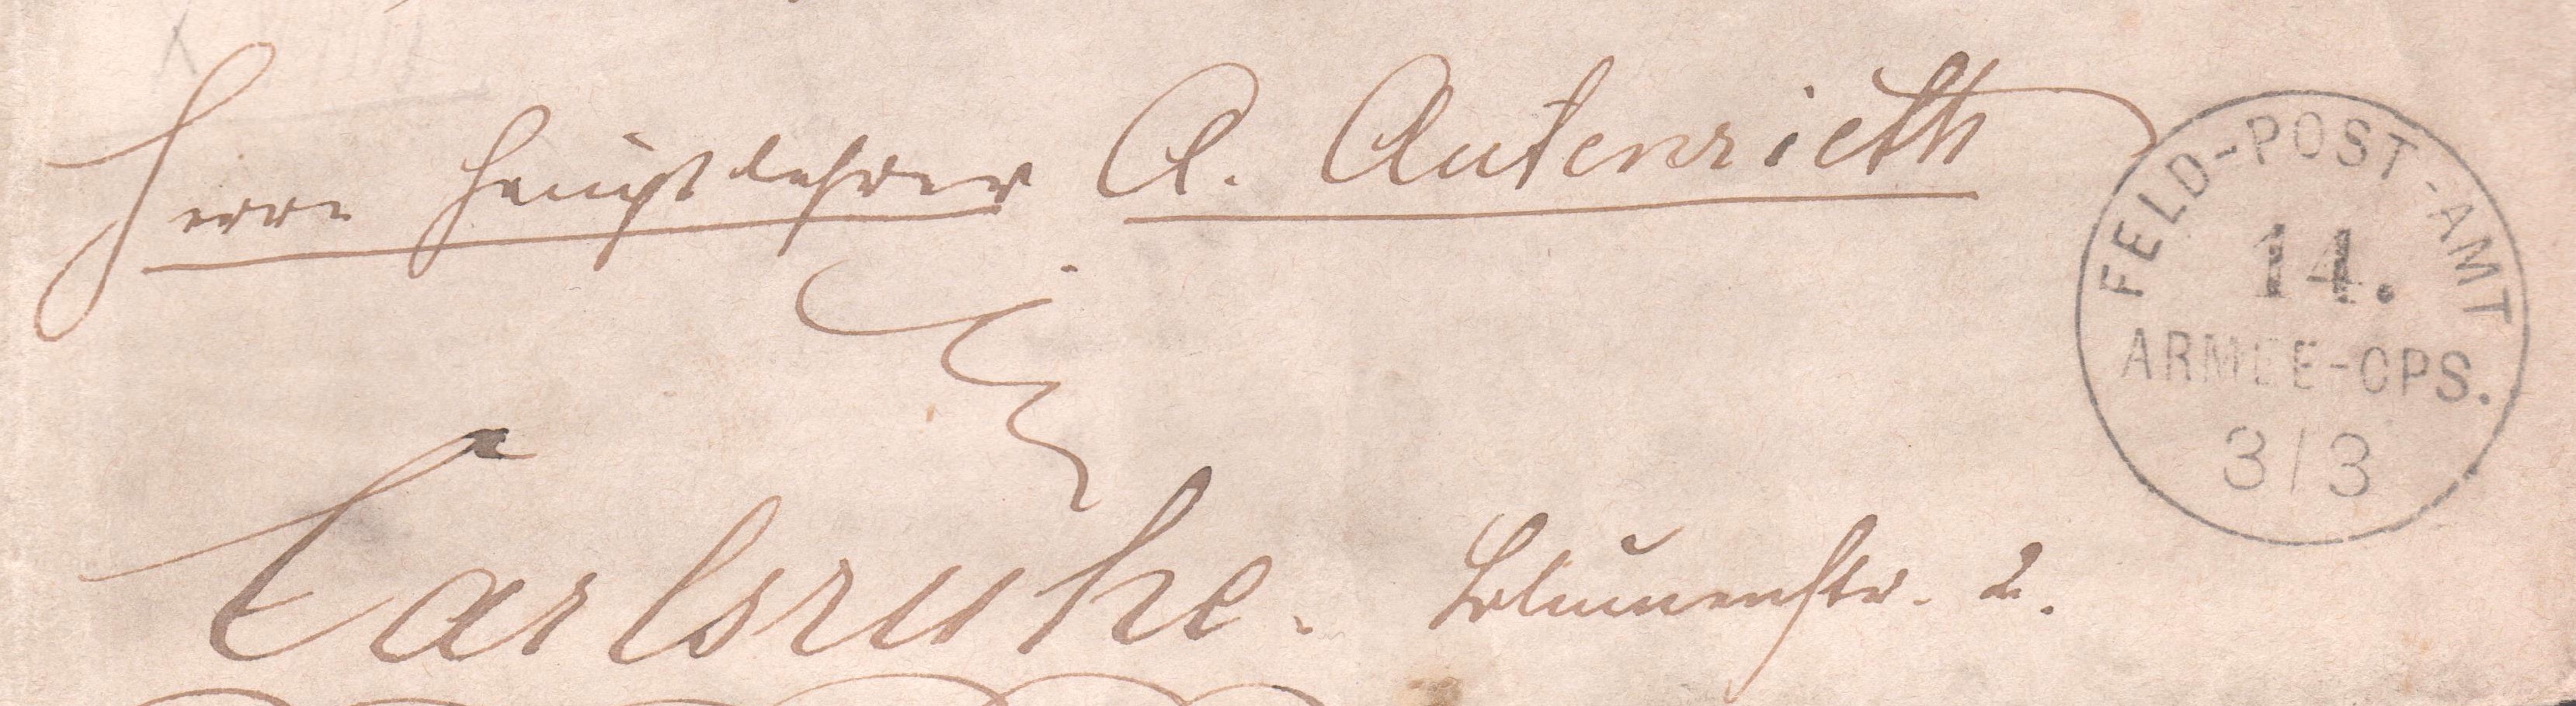 Herrn Hauptlehrer A. Autenrieth
FELD-POST-AMT
14.
ARMEE-CPS.
3/3
Carlsruhe. Blumenstr. 2.